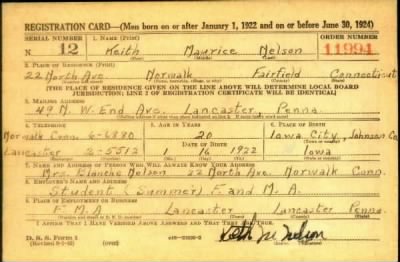 REGISTRATION CARD—(Men born on or after January 1, 1922 and on or before June 30, 1924)
SERIAL NUMBER 1. NAME (Print) ORDER NUMBER
N 12 Keith Maurice Nelson 11994
2. PLACE OF RESIDENCE (Print)
22 North Ave. Norwalk Fairfield Connecticut
[THE PLACE OF RESIDENCE GIVEN ON THE LINE ABOVE WILL DETERMINE LOCAL BOARD
JURISDICTION; LINE 2 OF REGISTRATION CERTIFICATE WILL BE IDENTICAL]
3. MAILING ADDRESS
49 N. W. End Ave. Lancaster, Penna.
4. TELEPHONE 5. AGE IN YEARS 6. PLACE OF BIRTH
Norwalk Conn. 6-6880 20 Iowa City, Johnson Co.
DATE OF BIRTH
Lancaster 2-5512 1 16 1922 Iowa
7. NAME AND ADDRESS OF PERSON WHO WILL ALWAYS KNOW YOUR ADDRESS
Mrs. Blanche Nelson 22 North Ave. Norwalk Conn.
8. EMPLOYER'S NAME AND ADDRESS
Student (Summer) F. and M. A.
9. PLACE OF EMPLOYMENT OR BUSINESS
F. M. A. Lancaster Lancaster Penna.
I AFFIRM THAT I HAVE VERIFIED ABOVE ANSWERS AND THAT THEY ARE TRUE.
D. S. S. Form 1
Keith M. Nelson